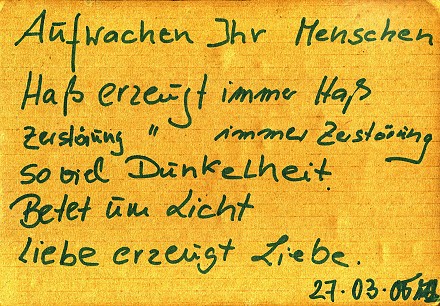 Aufwachen Ihr Menschen
Haß erzeugt immer Haß
Zerstörung " immer Zerstörung
soviel Dunkelheit.
Betet um Licht
liebe erzeugt Liebe.
27.03.06